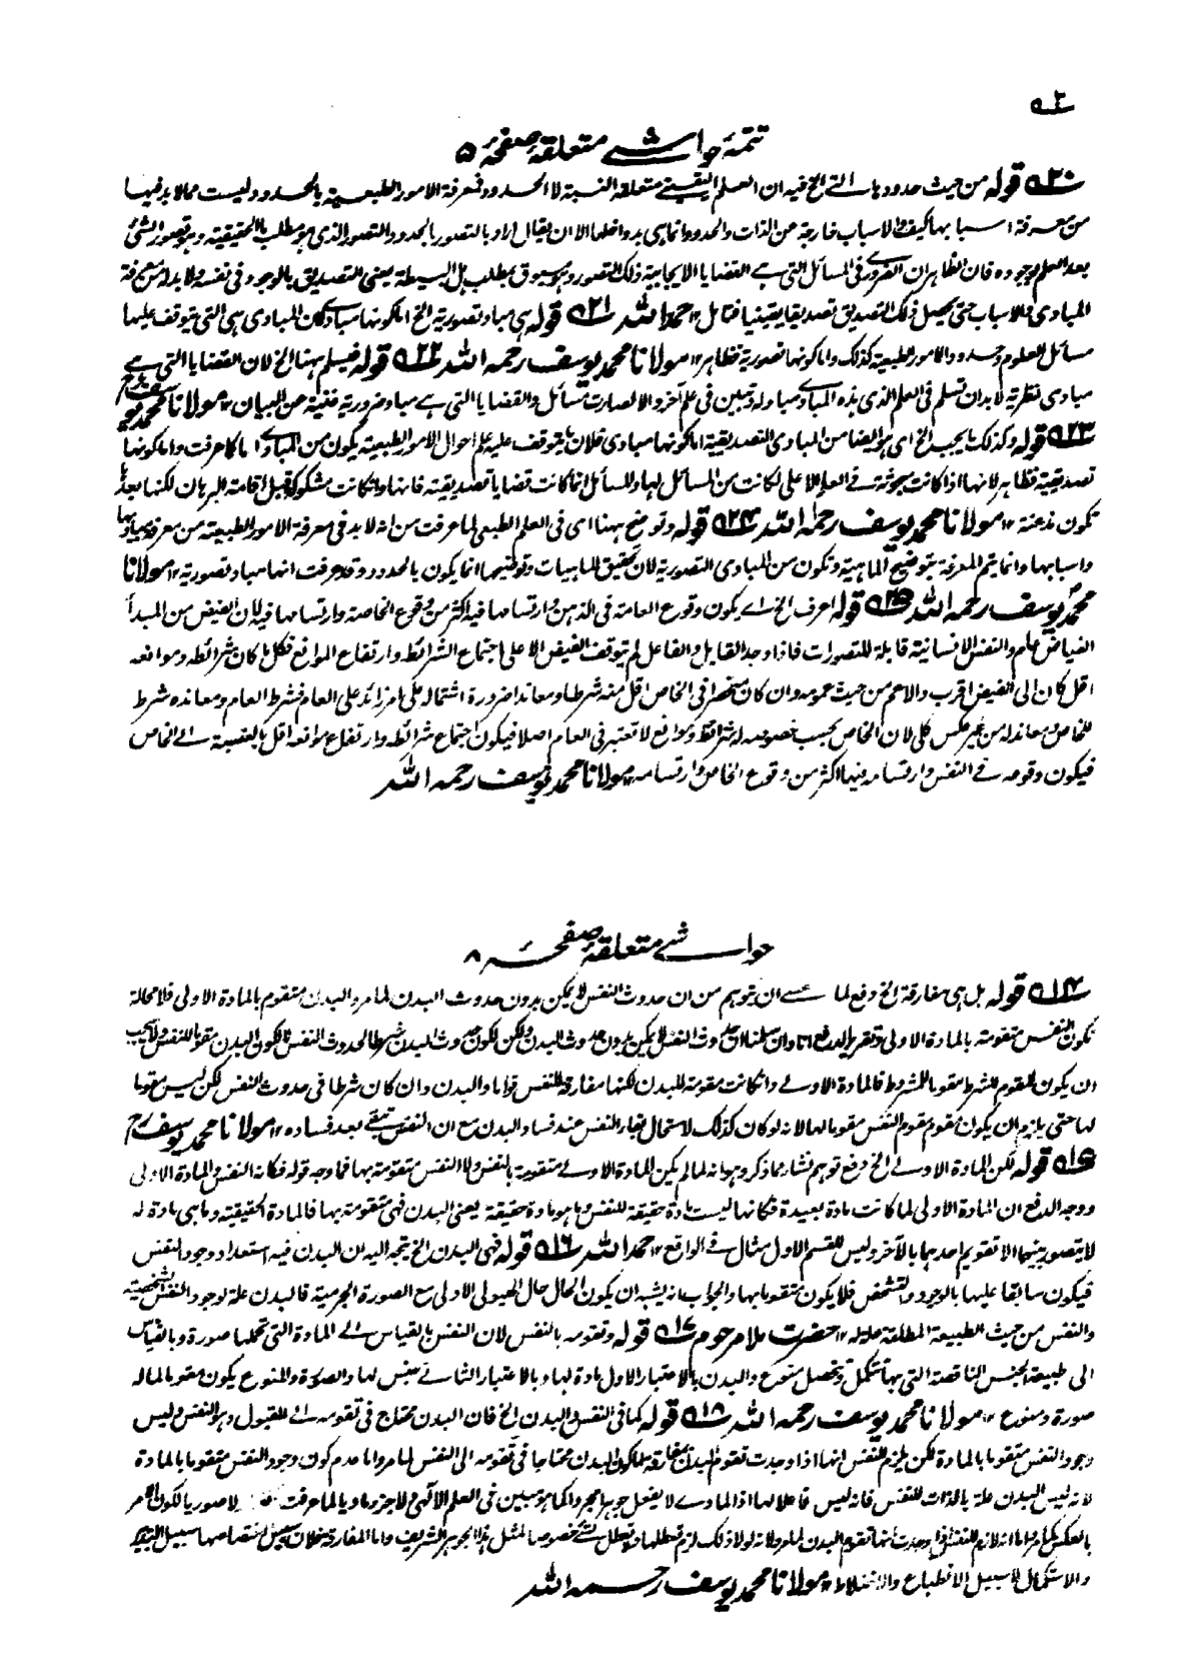 تتمۂ حواشی متعلقہ صفحۂ ۵
۲۰ قوله من حيث حدودها التى الخ فيه ان العلم اليقينى متعلقه النسبة لا الحدود فمعرفة الامور الطبعية بالحدود ليست مما لا بد فيها
من معرفة اسبابها كيف والاسباب خارجة عن الذات والحدود انما هى بدواخلها الا ان يقال اراد بالتصور بالحدود التصور الذى هو مطلب ما الحقيقية وهو تصور الشئ
بعد العلم بوجوده فان الظاهر ان الضرورى فى المسائل التى هى القضايا الايجابية ذلك التصور وهو مسبوق بمطلب هل البسيطة يعنى التصديق بالوجود فى نفسه ولا بد له من معرفة
المبادى والاسباب حتى يحصل ذلك التصديق تصديقا يقينيا فتامل ١٢ حمد الله ۲۱ قوله هى مباد تصورية الخ اما كونها مبادى فلان المبادى هى التى يتوقف عليها
مسائل العلوم وحدود الامور الطبعية كذلك واما كونها تصورية فظاهر ١٢ مولانا محمد يوسف رحمه الله ۲۲ قوله فيسلم ههنا الخ لان القضايا التى هى
مبادى نظرية لا بد ان تسلم فى العلم الذى هذه المبادى مباد له وتبين فى علم آخر والا لصارت مسائل والقضايا التى هى مباد ضرورية غنية عن البيان ١٢ مولانا محمد يوسف رحمه الله
۲۳ قوله وكذلك ما يجب الخ اى هو ايضا من المبادى التصديقية اما كونها مبادى فلان ما يتوقف عليه علم احوال الامور الطبعية يكون من المبادى كما عرفت واما كونها
تصديقية فظاهر لانها اذا كانت مبحوثة فى العلم الاعلى لكانت من المسائل لها والمسائل انما كانت قضايا تصديقية فانها وان كانت مشكوكة قبل اقامة البرهان لكنها بعده
تكون مذعنة ١٢ مولانا محمد يوسف رحمه الله ۲۴ قوله وتوضح ههنا اى فى العلم الطبعى لما عرفت من انه لا بد فى معرفة الامور الطبعية من معرفة مباديها
واسبابها وانما يتم المعرفة بتوضيح الماهية وتكون من المبادى التصورية لان تحقيق الماهيات وتوضيحها انما يكون بالحدود وقد عرفت انها مباد تصورية ١٢ مولانا
محمد يوسف رحمه الله ۲۵ قوله اعرف الخ اى يكون وقوع العامة فى الذهن وارتسامها فيه اكثر من وقوع الخاصة وارتسامها فيه لان الفيض من المبدأ
الفياض عام والنفس الانسانية قابلة للتصورات فاذا وجد القابل والفاعل لم يتوقف الفيض الا على اجتماع الشرائط وارتفاع الموانع فكل ما كان شرائطه وموانعه
اقل كان الى الفيض اقرب والاعم من حيث عمومه وان كان منحصرا فى الخاص اقل منه شرطا ومعاندا ضرورة اشتماله على امر زائد على العام فشرط العام ومعانده شرط
للخاص ومعاند له من غير عكس كلى لان الخاص بحسب خصوصه له شرائط وموانع لا تعتبر فى العام اصلا فيكون اجتماع شرائطه وارتفاع موانعه اقل بالنسبة الى الخاص
فيكون وقوعه فى النفس وارتسامه فيها اكثر من وقوع الخاص وارتسامه ١٢ مولانا محمد يوسف رحمه الله
حواشی متعلقہ صفحۂ ۸
۱۴ قوله بل هى مفارقة الخ دفع لما عسى ان يتوهم من ان حدوث النفس لا يمكن بدون حدوث البدن لما مر والبدن متقوم بالمادة الاولى فلا محالة
تكون النفس متقومة بالمادة الاولى وتقرير الدفع انا وان سلمنا ان حدوث النفس لا يمكن بدون حدوث البدن ولكن لكون حدوث البدن شرطا لحدوث النفس لا لكون البدن مقوما للنفس ولا يجب
ان يكون المقوم للشرط مقوما للمشروط فالمادة الاولى وان كانت مقومة للبدن لكنها مفارقة للنفس قواما والبدن وان كان شرطا فى حدوث النفس لكن ليس مقوما
لها حتى يلزم ان يكون مقوم مقوم النفس مقوما لها لانه لو كان كذلك لاستحال بقاء النفس عند فساد البدن مع ان النفس تبقى بعد فساده ١٢ مولانا محمد يوسف رح
۱۵ قوله لكن المادة الاولى الخ دفع توهم نشأ مما ذكر وهو انه لما لم يكن المادة الاولى متقومة بالنفس ولا النفس متقومة بها فما وجه قوله فكانه النفس والمادة الاولى
ووجه الدفع ان المادة الاولى لما كانت مادة بعيدة فكانها ليست مادة حقيقة للنفس وما هو مادة حقيقة يعنى البدن فهى متقومة بها فالمادة الحقيقية وما هى مادة له
لا يتصور بينهما الا تقويم احدهما بالآخر وليس للقسم الاول مثال فى الواقع ١٢ حمد الله ۱۶ قوله فهى البدن الخ يتجه اليه ان البدن فيه استعداد وجود النفس
فيكون سابقا عليها بالوجود والتشخص فلا يكون متقوما بها والجواب انه يشبه ان يكون الحال حال الهيولى الاولى مع الصورة الجرمية فالبدن علة لوجود النفس الشخصية
والنفس من حيث الطبيعة المطلقة علة له ١٢ حضرت ملا مرحوم ۱۷ قوله وتقومه بالنفس لان النفس بالقياس الى المادة التى تحلها صورة وبالقياس
الى طبيعة الجنس الناقصة التى بها تتكمل وتتحصل منوع والبدن بالاعتبار الاول مادة لها وبالاعتبار الثانى جنس لها والصورة والمنوع يكون مقوما لما له
صورة ومنوع ١٢ مولانا محمد يوسف رحمه الله ۱۸ قوله كما فى النفس والبدن الخ فان البدن محتاج فى تقومه الى المقبول وهو النفس وليس
وجود النفس متقوما بالمادة لكن يلزم للنفس انها اذا وجدت تقوم البدن مفارقة اما كون البدن محتاجا فى تقومه الى النفس لما مر واما عدم كون وجود النفس متقوما بالمادة
لانه ليس البدن علة بالذات للنفس فانه ليس فاعلا لها اذ المادى لا يفعل جوهرا مجردا كما هو مبين فى العلم الالٰهى ولا جزء ماديا لما عرفت لا صوريا لكون الامر
بالعكس كما مر واما انه لازم للنفس اذا وجدت انها تقوم البدن لما مر ولانه لولا ذلك لزم تعطلها ولا تعطل شئ خصوصا لمثل هذا الجوهر الشريف واما المفارقة فلان سبيل اختصاصها سبيل التدبير
والاستكمال لا سبيل الانطباع والاختلاط ١٢ مولانا محمد يوسف رحمه الله